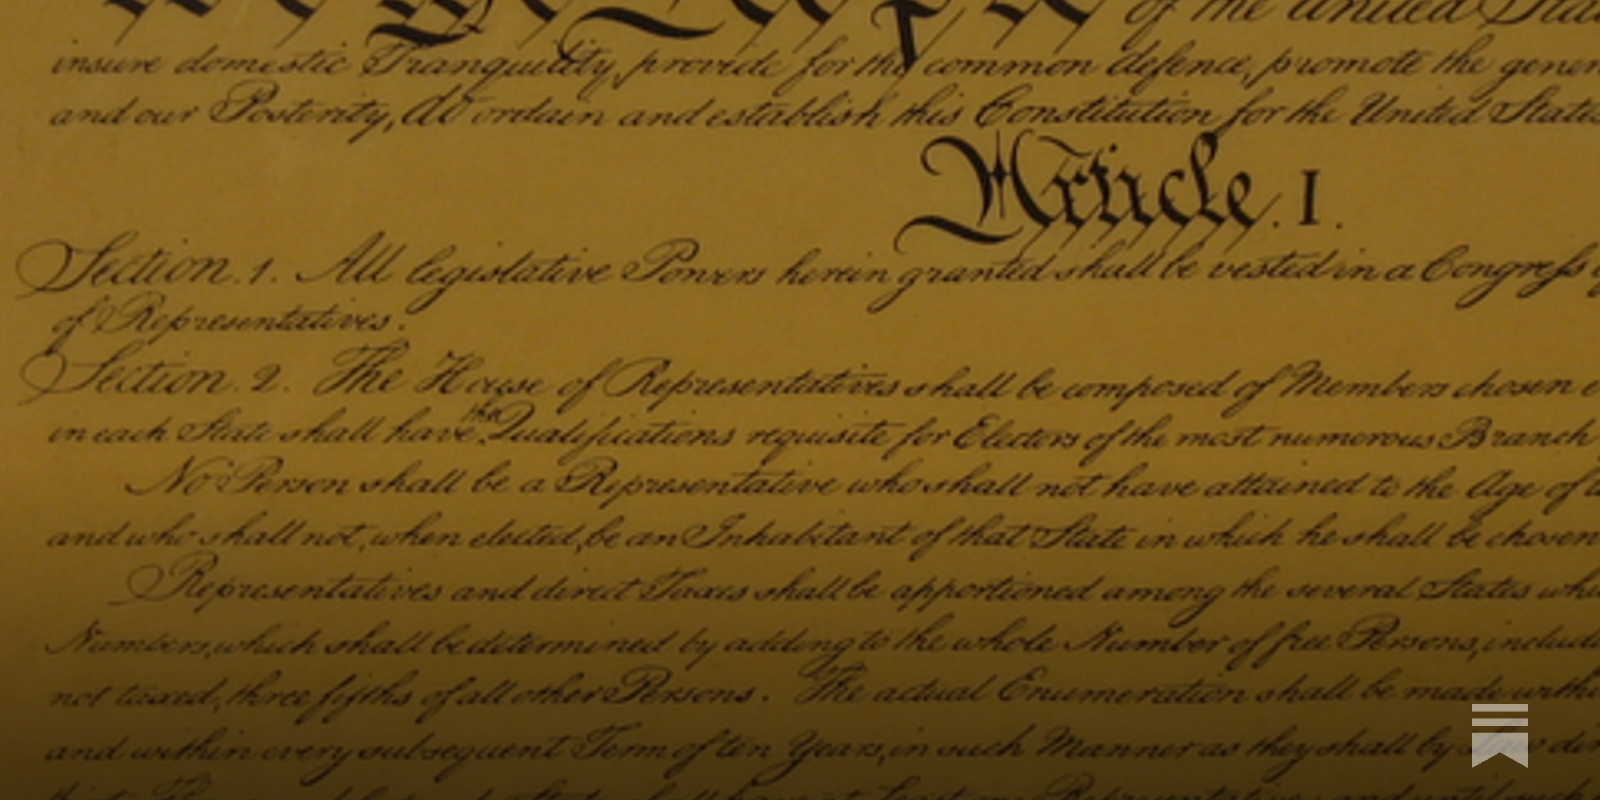 of the United Sta
insure domestic Tranquility, provide for the common defence, promote the gener
and our Posterity, do ordain and establish this Constitution for the United States
Article. I.
Section. 1. All legislative Powers herein granted shall be vested in a Congress
of Representatives.
Section. 2. The House of Representatives shall be composed of Members chosen e
in each State shall have the Qualifications requisite for Electors of the most numerous Branch
No Person shall be a Representative who shall not have attained to the Age of
and who shall not, when elected, be an Inhabitant of that State in which he shall be chosen
Representatives and direct Taxes shall be apportioned among the several States whi
Numbers, which shall be determined by adding to the whole Number of free Persons, includ
not taxed, three fifths of all other Persons. The actual Enumeration shall be made withi
and within every subsequent Term of ten Years, in such Manner as they shall by Law dir